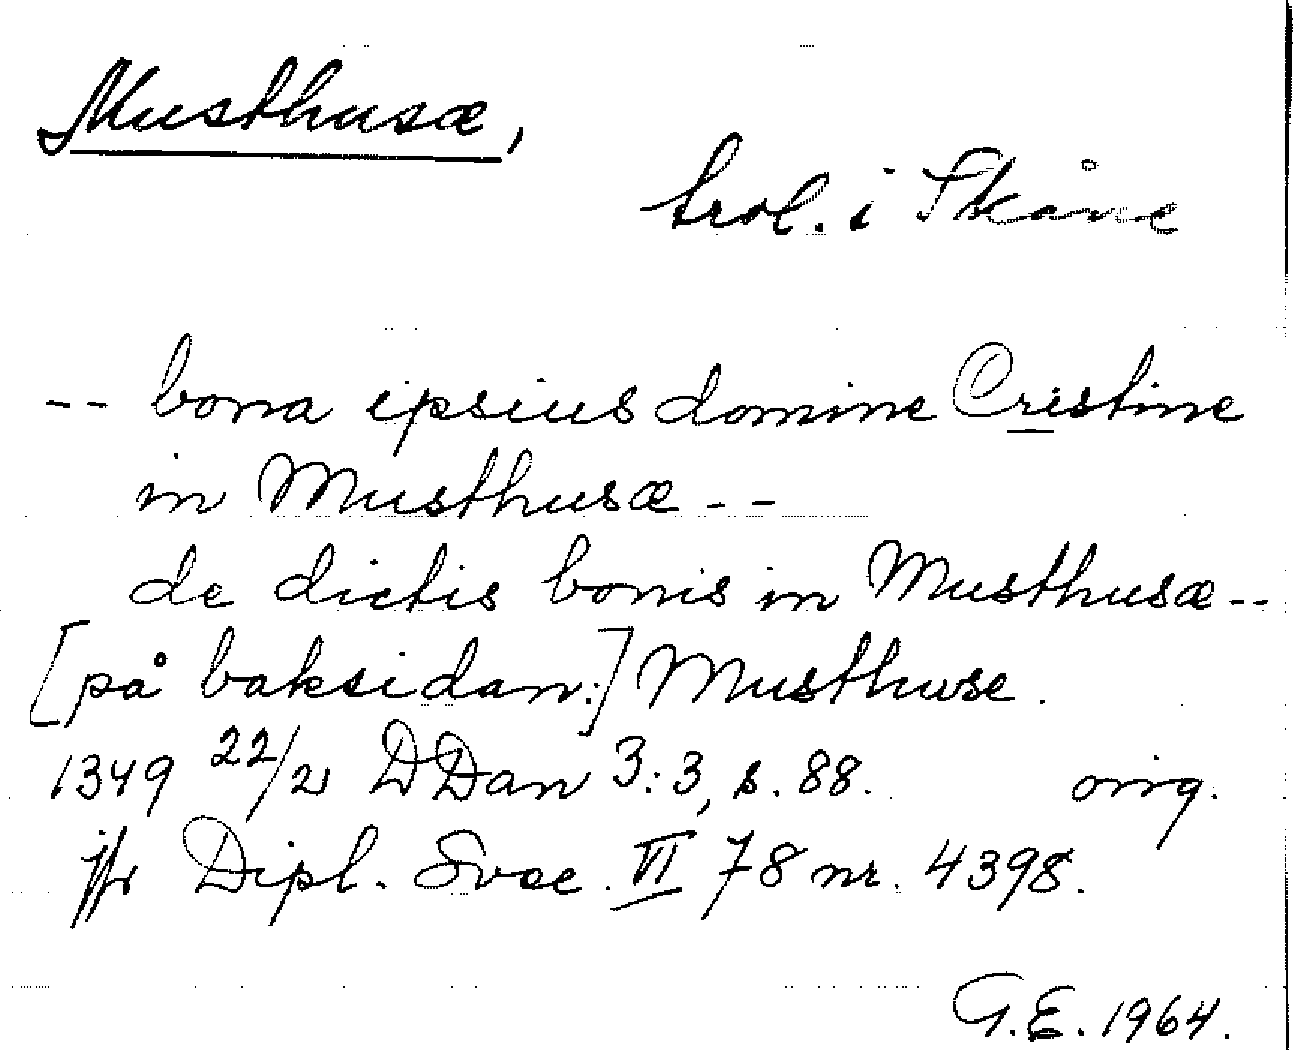 Musthusæ,
trol. i Skåne
-- bona ipsius domine Cristine
in Musthusæ --
de dictis bonis in Musthusæ --
[på baksidan:] Musthuse.
1349 22/2 DDan 3:3, s. 88. orig.
jfr Dipl. Svec. VI 78 nr. 4398.
G.E. 1964.